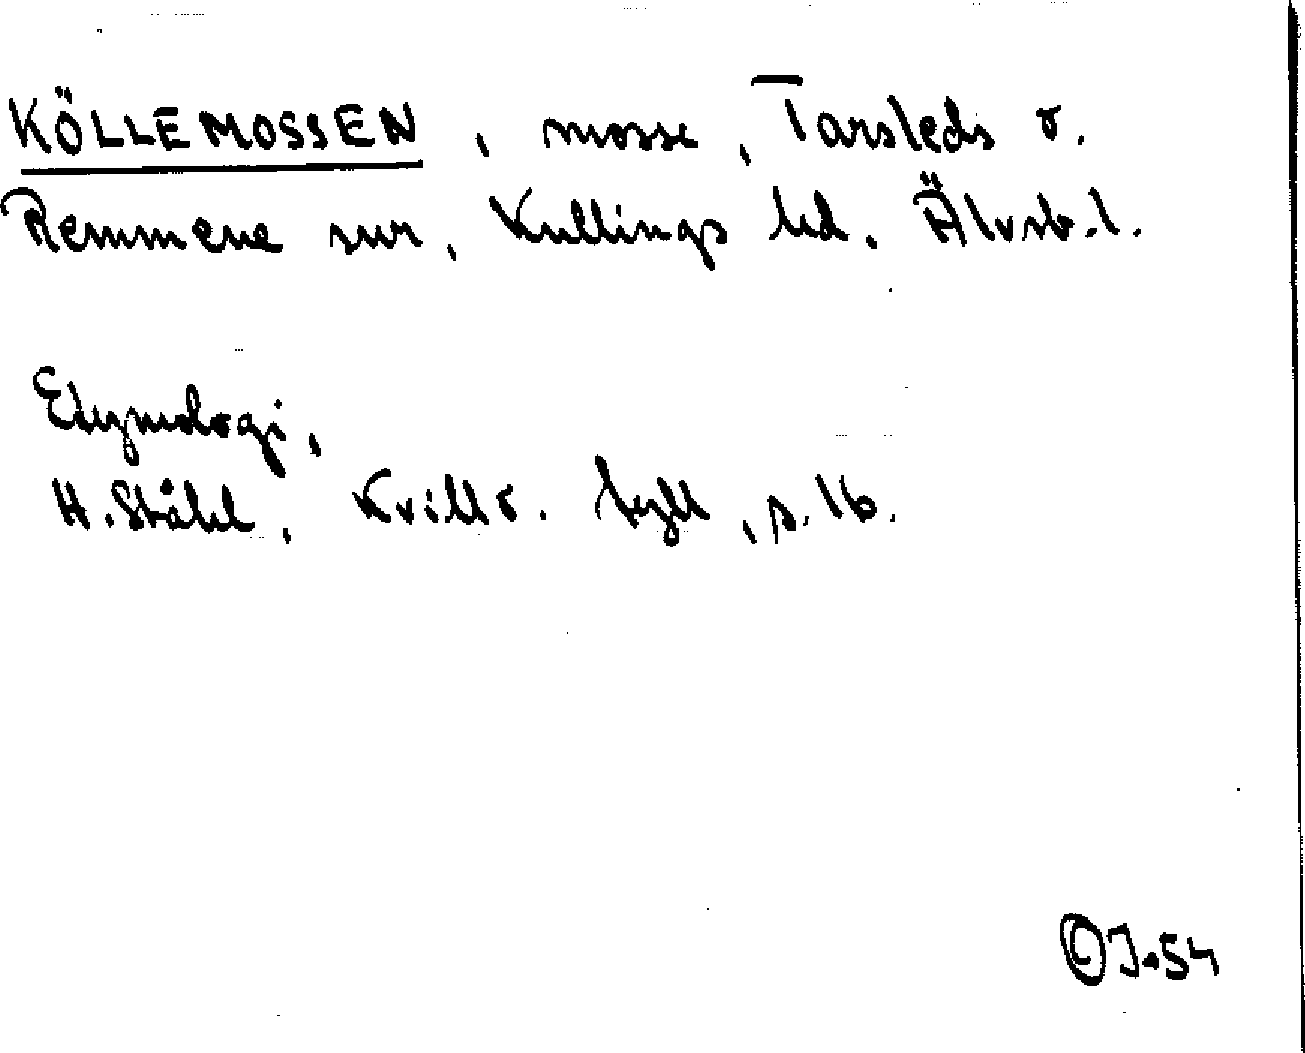 KÖLLEMOSSEN, mosse, Tarsleds o.
Remmene snr, Kullings hd. Älvsb.l.
Etymologi,
H. Ståhl, Kvill o. tyll, s. 16.